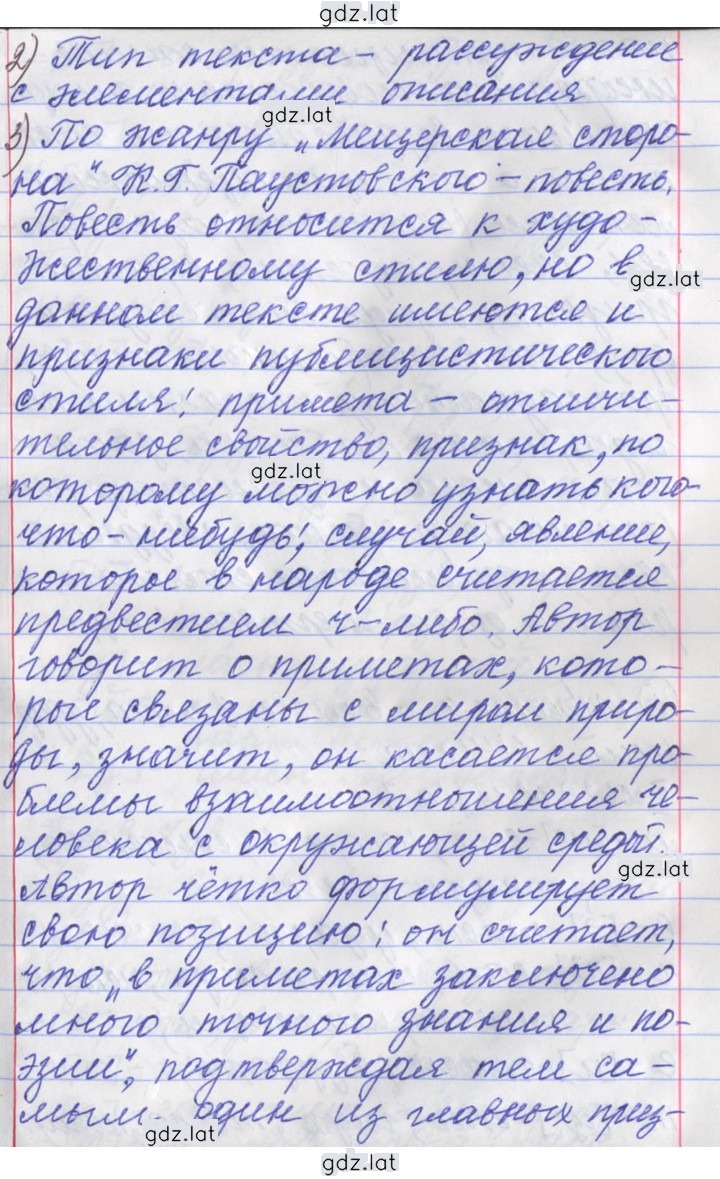 gdz.lat
2) Тип текста – рассуждение
с элементами описания
gdz.lat
3) По жанру „Мещерская сторо-
на" К.Г. Паустовского – повесть.
Повесть относится к худо-
жественному стилю, но в
gdz.lat
данном тексте имеются и
признаки публицистического
стиля: примета – отличи-
тельное свойство, признак, по
gdz.lat
которому можно узнать кого-
что-нибудь; случай, явление,
которое в народе считается
предвестием ч-либо. Автор
говорит о приметах, кото-
рые связаны с миром приро-
ды, значит, он касается про-
блемы взаимоотношения че-
ловека с окружающей средой.
gdz.lat
Автор чётко формулирует
свою позицию: он считает,
что „в приметах заключено
много точного знания и по-
эзии", подтверждая тем са-
мым один из главных приз-
gdz.lat
gdz.lat